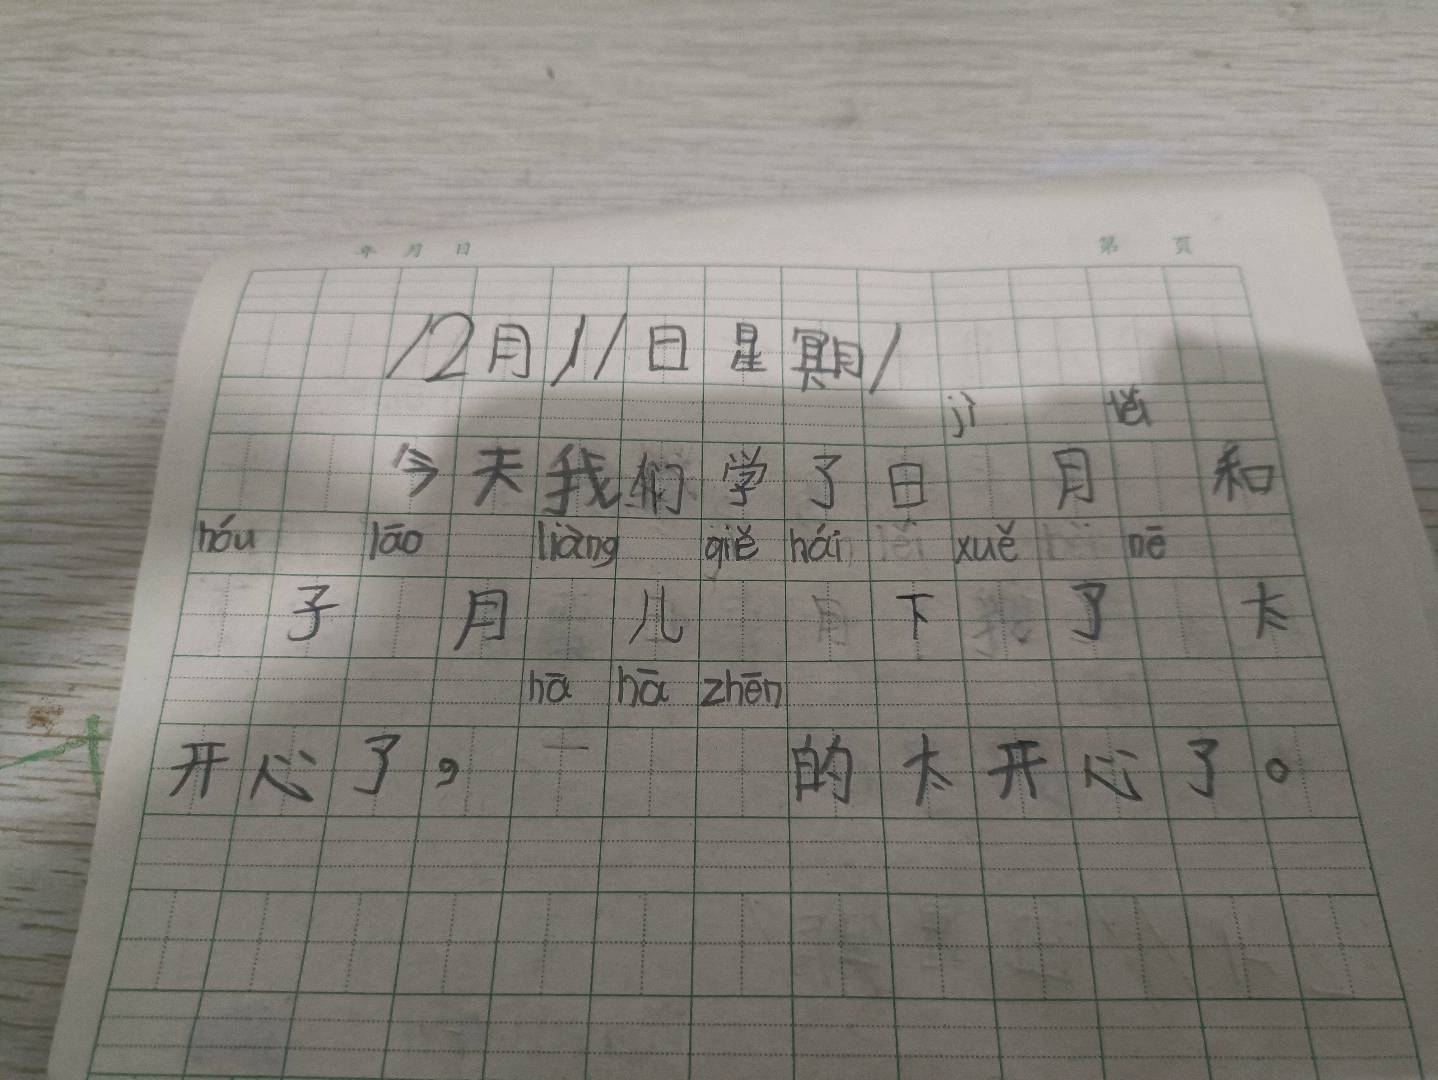 年 月 日 第 页
12月11日星期1
jì těi
今天我们学了日 月 和
hóu lāo liàng giě hái xuě nē
子 月 儿 下 了 太
hā hā zhēn
开心了， 的太开心了。